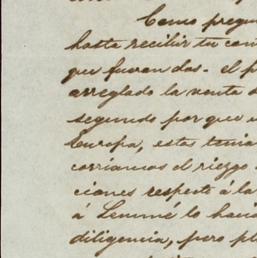 Como pregun
hasta recibir tu con
que fueran dos. el p
arreglado la venta d
segundo por que e
Europa, estas tenia
corriamos el riezgo
ciones respeto á la
á Lemmé lo hacia
diligencia, pero pl